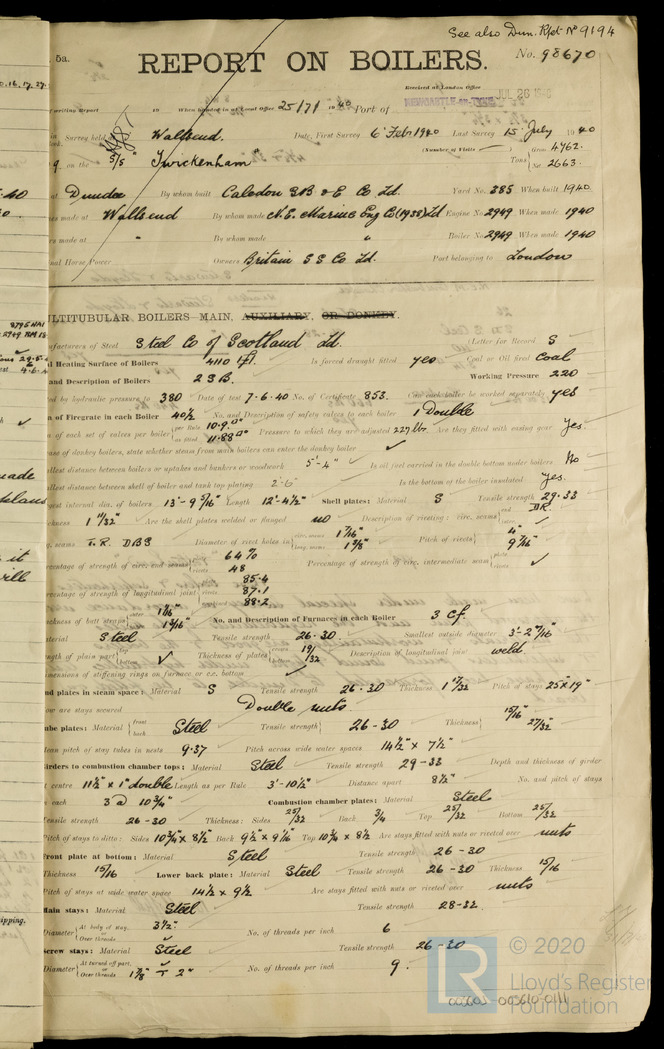 See also Dun. Rpt. No 9194
5a.
REPORT ON BOILERS.
No. 98670
Received at London Office
writing Report 19 When handed in at Local Office 25/7/ 1940 Port of NEWCASTLE-on-TYNE JUL 26
Survey held Wallsend. Date, First Survey 6 Feb 1940 Last Survey 15 July 1940
on the S/S "Twickenham" (Number of Visits) Tons Gross 4762. Net 2663.
at Dundee By whom built Caledon S.B & E Co Ld. Yard No. 385 When built 1940.
es made at Wallsend By whom made N.E. Marine Eng Co (1938) Ld Engine No. 2949 When made 1940
rs made at " By whom made " Boiler No. 2949 When made 1940
nal Horse Power Owners Britain S S Co Ld. Port belonging to London
LTITUBULAR BOILERS—MAIN, AUXILIARY, OR DONKEY.
ufacturers of Steel Steel Co of Scotland Ld. (Letter for Record S
l Heating Surface of Boilers 4110 Is forced draught fitted yes Coal or Oil fired Coal
and Description of Boilers 2 S.B. Working Pressure 220
ed by hydraulic pressure to 380 Date of test 7.6.40 No. of Certificate 853. Can each boiler be worked separately yes
of Firegrate in each Boiler 40½ No. and Description of safety valves to each boiler 1 Double
of each set of valves per boiler per Rule 10.9 as fitted 11.88 Pressure to which they are adjusted 227 lbs. Are they fitted with easing gear Yes.
ase of donkey boilers, state whether steam from main boilers can enter the donkey boiler ✓
llest distance between boilers or uptakes and bunkers or woodwork 5'-4" Is oil fuel carried in the double bottom under boilers No
llest distance between shell of boiler and tank top plating 2'-6" Is the bottom of the boiler insulated yes.
gest internal dia. of boilers 13'-9 5/16" Length 12'-4½" Shell plates: Material S Tensile strength 29-33
ckness 1 11/32" Are the shell plates welded or flanged no Description of riveting: circ. seams end DR inter ✓
g. seams T.R. DBS Diameter of rivet holes in circ. seams 1 7/16" long. seams 1 3/8" Pitch of rivets 4" 9 7/16"
ercentage of strength of circ. end seams 64% 48 Percentage of strength of circ. intermediate seam ✓
ercentage of strength of longitudinal joint 85.4 87.1 88.2
ickness of butt straps outer 1 1/16" inner 1 3/16" No. and Description of Furnaces in each Boiler 3 Cf.
aterial Steel Tensile strength 26-30. Smallest outside diameter 3'-2 7/16"
ngth of plain part top bottom ✓ Thickness of plates crown bottom 19/32 Description of longitudinal joint weld.
imensions of stiffening rings on furnace or c.c. bottom ✓
nd plates in steam space: Material S Tensile strength 26-30 Thickness 1 17/32 Pitch of stays 25"x19"
ow are stays secured Double nuts.
ube plates: Material front back Steel Tensile strength 26-30 Thickness 15/16" 27/32"
ean pitch of stay tubes in nests 9.37 Pitch across wide water spaces 14½" x 7½"
irders to combustion chamber tops: Material Steel Tensile strength 29-33 Depth and thickness of girder
t centre 11½" x 1" double Length as per Rule 3'-10½" Distance apart 8½" No. and pitch of stays
n each 3 @ 10¾" Combustion chamber plates: Material Steel
ensile strength 26-30 Thickness: Sides 25/32 Back 3/4 Top 25/32 Bottom 25/32
Pitch of stays to ditto: Sides 10¾" x 8½" Back 9½" x 9 1/16" Top 10¾ x 8½ Are stays fitted with nuts or riveted over nuts
Front plate at bottom: Material Steel Tensile strength 26-30
Thickness 15/16 Lower back plate: Material Steel Tensile strength 26-30 Thickness 15/16
Pitch of stays at wide water space 14½ x 9½ Are stays fitted with nuts or riveted over nuts
Main stays: Material Steel Tensile strength 28-32.
Diameter At body of stay, or Over threads 3½" No. of threads per inch 6
Screw stays: Material Steel Tensile strength 26-30
Diameter At turned off part, or Over threads 1 7/8" & 2" No. of threads per inch 9.
LR
© 2020
Lloyd's Register
Foundation